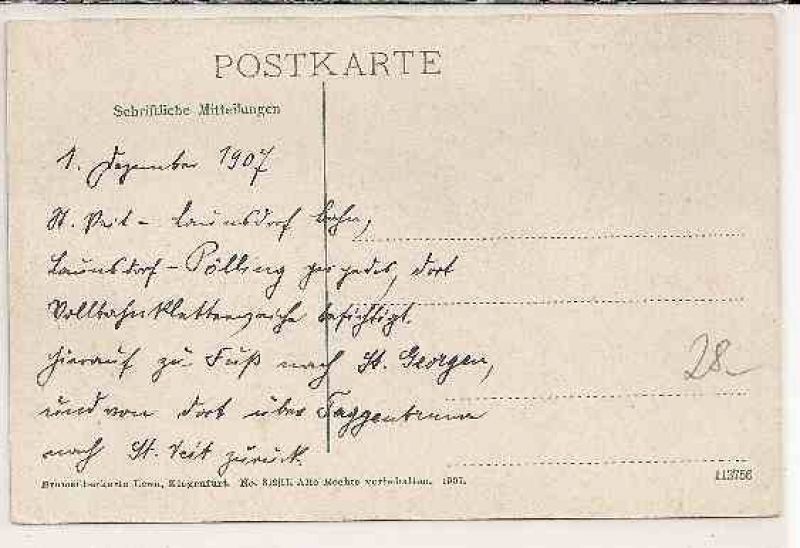 POSTKARTE
Schriftliche Mitteilungen
1. Dezember 1907
St. Veit - Launsdorf Bahn,
Launsdorf - Pölling per pedes, dort
Vollbahnkletterweiche besichtigt.
Hierauf zu Fuß nach St. Georgen,
und von dort über Taggenbrunn
nach St. Veit zurück.
28.-
Leon, Klagenfurt. No. Alle Rechte vorbehalten. 1907.
113756